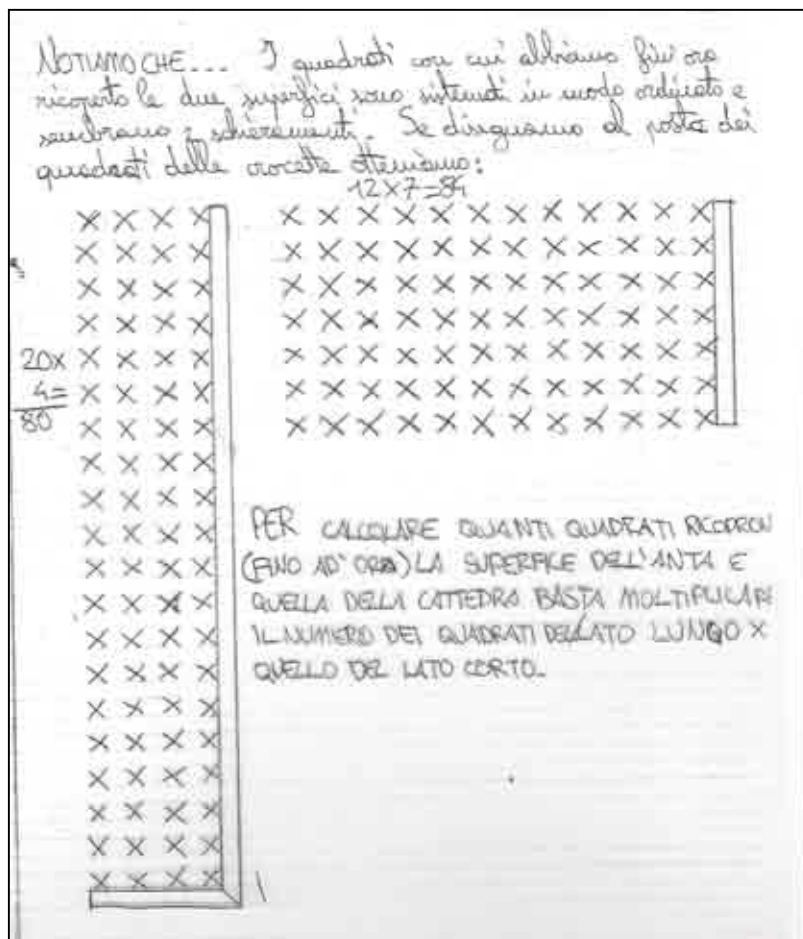 NOTIAMO CHE... I quadrati con cui abbiamo fin'ora
ricoperto le due superfici sono sistemati in modo ordinato e
sembrano schieramenti. Se disegniamo al posto dei
quadrati delle crocette otteniamo:
12X7=84
20x
4=
80
PER CALCOLARE QUANTI QUADRATI RICOPRON
(FINO AD'ORA) LA SUPERFICE DELL'ANTA E
QUELLA DELLA CATTEDRA BASTA MOLTIPLICARE
IL NUMERO DEI QUADRATI DEL LATO LUNGO X
QUELLO DEL LATO CORTO.